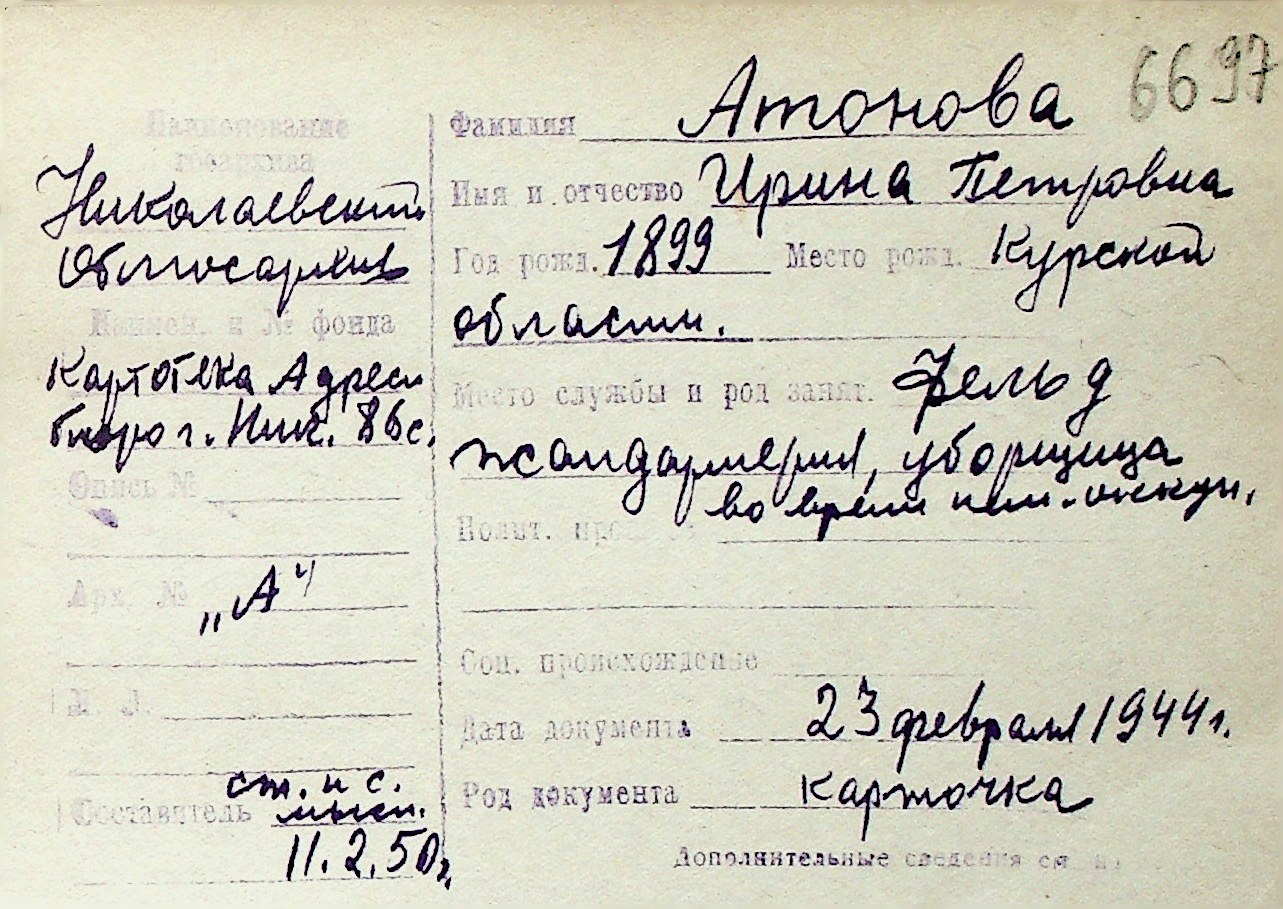 6697
Наименование
госархива
Николаевский
Облгосархив
Наимен. и № фонда
Картотека Адресн
бюро г. Ник. 86с.
Опись №
Арх. № „А“
Л. Л.
Составитель ст. н с.
11.2.50г.
Фамилия Атонова
Имя и отчество Ирина Петровна
Год рожд. 1899 Место рожд. Курской
области.
Место службы и род занят. Фельд
жандармерия, уборщица
во время нем. оккуп.
Полит.
Соц. происхождение
Дата документа 23 февраля 1944г.
Род документа карточка
Дополнительные сведения см